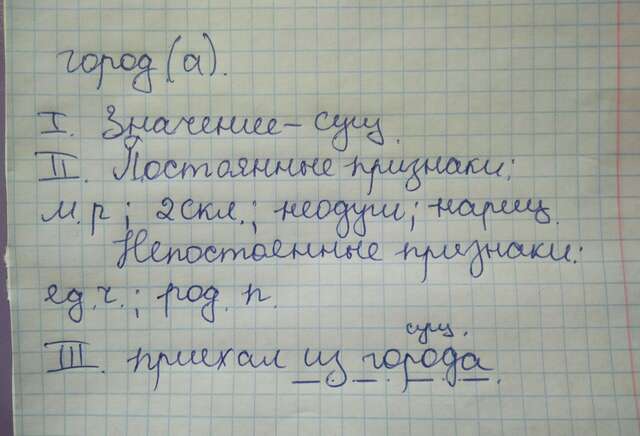 город (а).
I. Значение – сущ.
II. Постоянные признаки:
м.р; 2скл.; неодуш; нариц.
Непостоенные признаки:
ед.ч.; род. п.
сущ.
III. приехал из города.